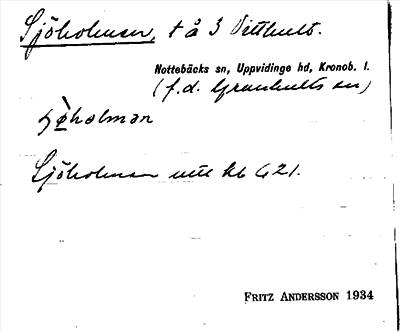 Sjöholmen, t å 3 Vitthult.
Nottebäcks sn, Uppvidinge hd, Kronob. l.
(f.d. Granhults sn)
ʃø̀holmən
Sjöholmen utt kb G 21.
FRITZ ANDERSSON 1934